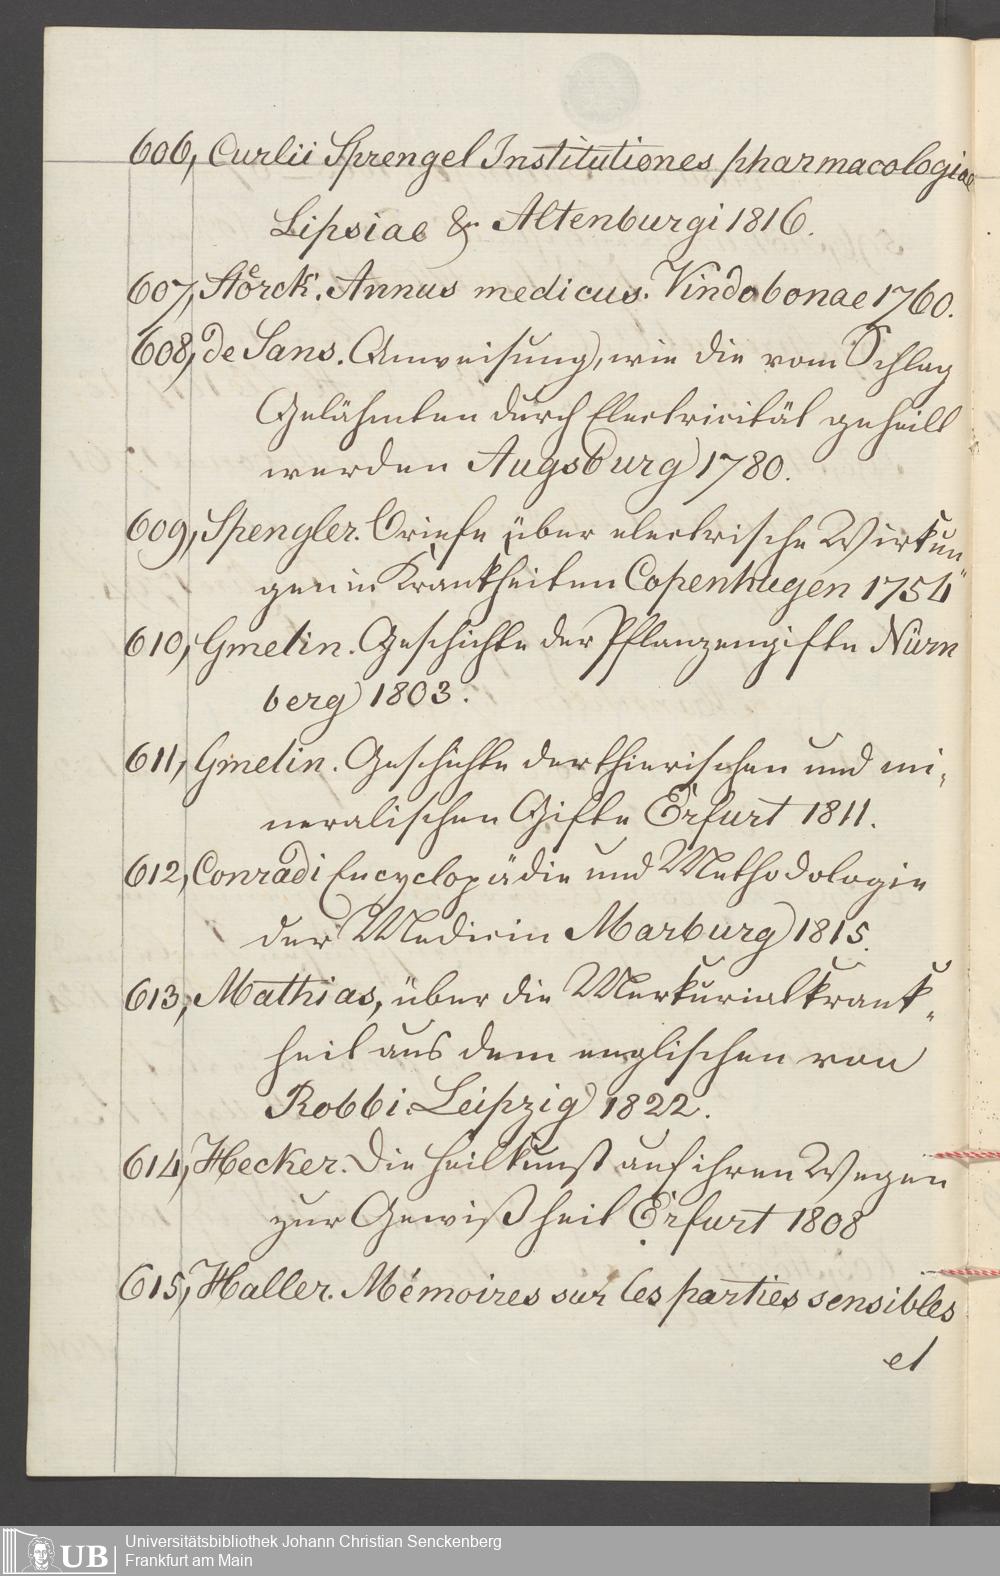 606, Curlii Sprengel Institutiones pharmacologiae
Lipsiae & Altenburgi 1816.
607, Störck. Annus medicus. Vindobonae 1760.
608, de Sans. Anweisung, wie die vom Schlag
Gelähmten durch Electricität geheilt
werden Augsburg 1780.
609, Spengler. Briefe über electrische Wirkun„
gen in Krankheiten Copenhagen 1754
610, Gmelin. Geschichte der Pflanzengifte Nürn
berg 1803.
611, Gmelin. Geschichte der thierischen und mi„
neralischen Gifte Erfurt 1811.
612, Conradi Encyclopädie und Methodologie
der Medicin Marburg 1815.
613, Mathias, über die Merkurialkrank„
heit aus dem englischen von
Robbi. Leipzig 1822.
614, Hecker. Die Heilkunst auf ihren Wegen
zur Gewißheit Erfurt 1808
615, Haller. Mémoires sur les parties sensibles
et
UB
Universitätsbibliothek Johann Christian Senckenberg
Frankfurt am Main